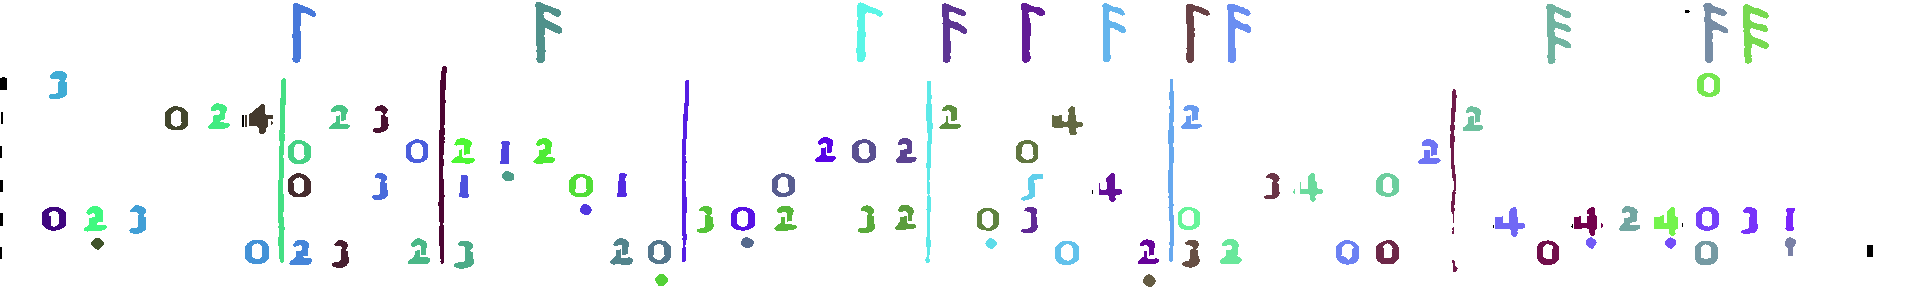 3 0
0 2 4 2 3 2 4 2 2
0 0 2 1 2 2 0 2 0 2
0 3 1 0 1 0 5 4 3 4 0
0 2 3 3 0 2 3 2 0 3 0 4 4 2 4 0 3 1
0 2 3 2 3 2 0 0 2 3 2 0 0 0 0